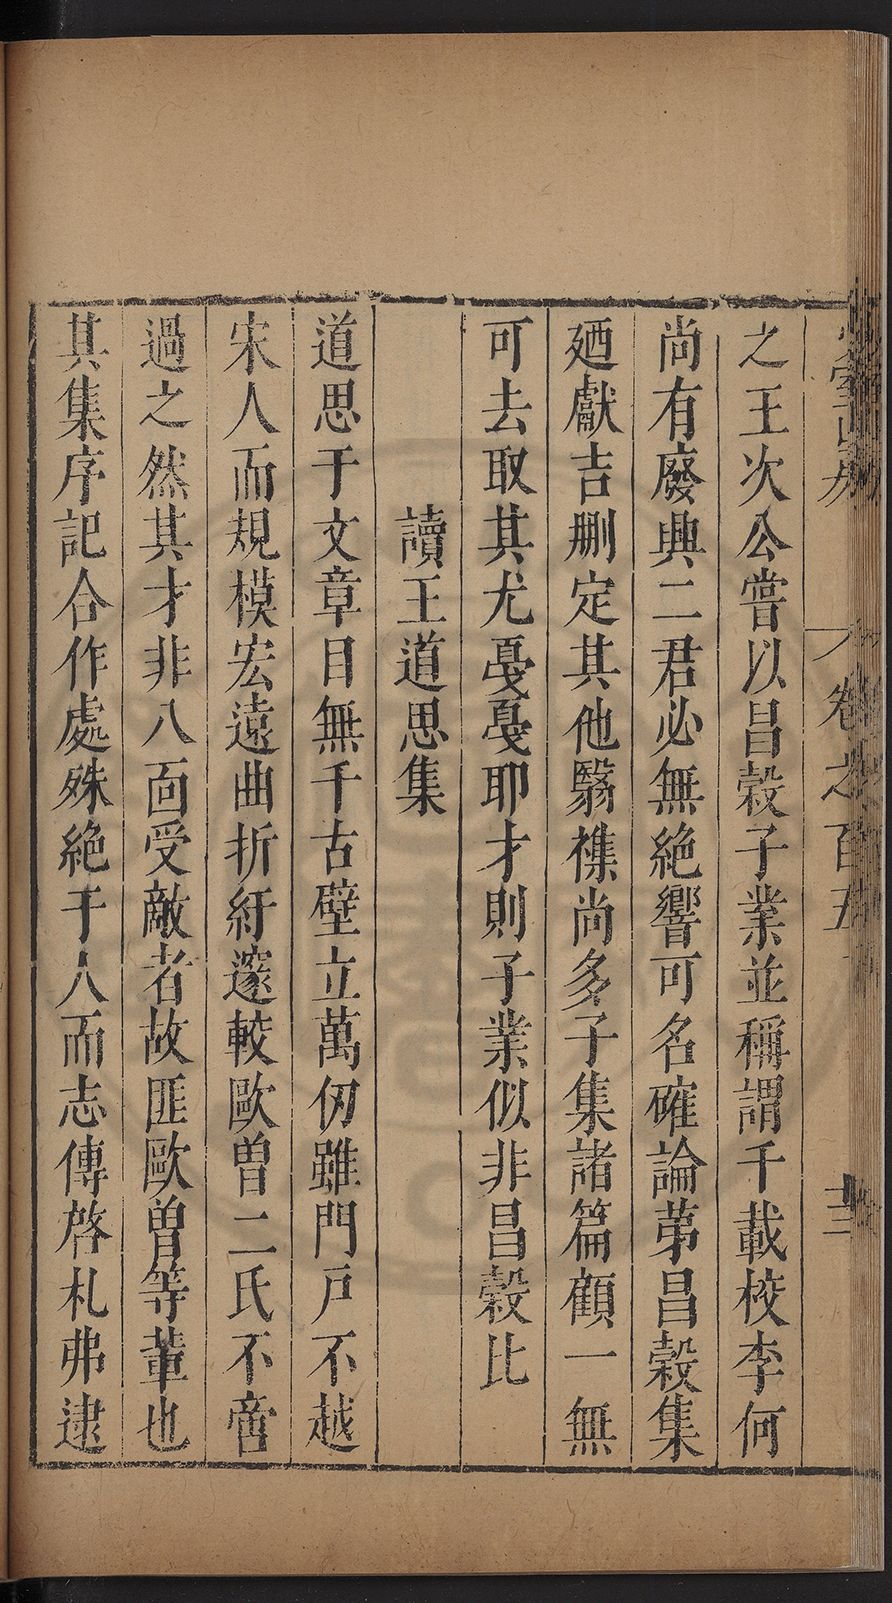 之王次公嘗以昌穀子業並稱謂千載校李何
尚有廢興二君必無絕響可名確論苐昌穀集
廼獻吉刪定其他翳襍尚多子集諸篇顧一無
可去取其尤戞戞耶才則子業似非昌穀比
讀王道思集
道思于文章目無千古壁立萬仞雖門戶不越
宋人而規模宏遠曲折紆邃較歐曾二氏不啻
過之然其才非八面受敵者故匪歐曾等輩也
其集序記合作處殊絕于人而志傳啓札弗逮
卷之百五
十二